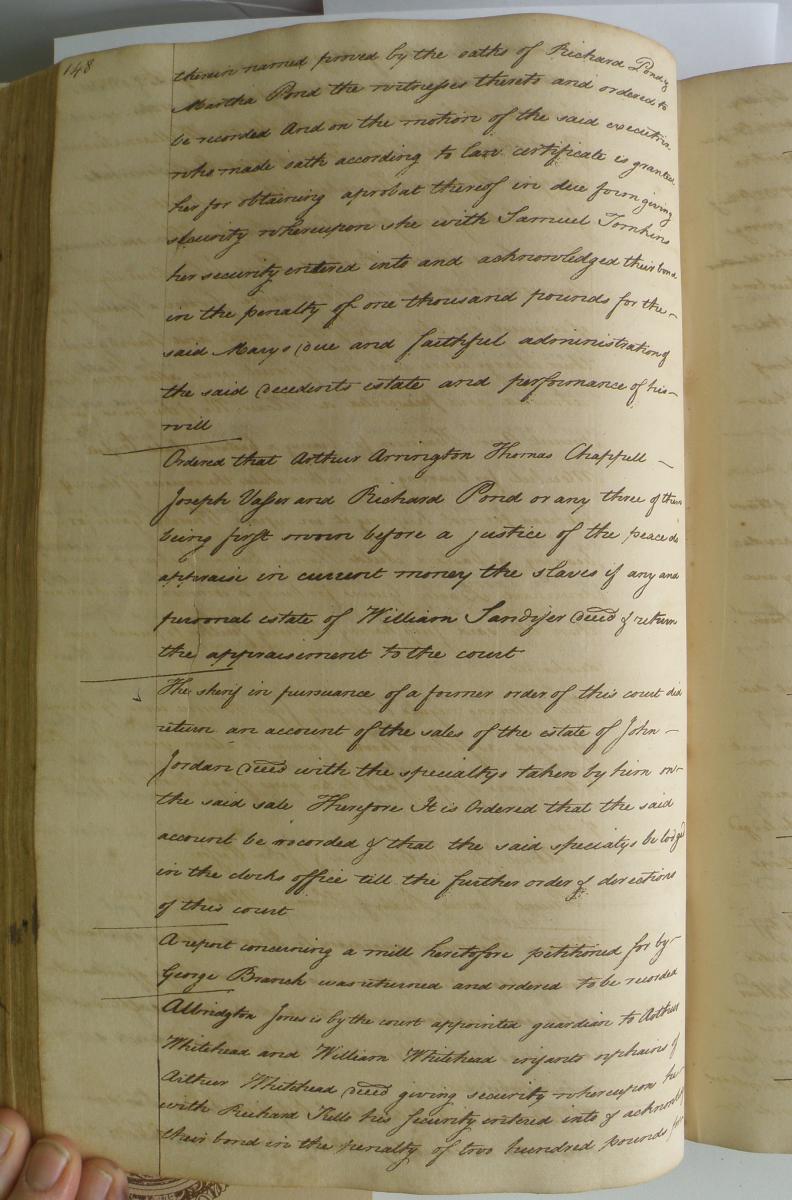 148
therein named proved by the oaths of Richard Pond &
Martha Pond the witnesses thereto and ordered to
be recorded And on the motion of the said executrix
who made oath according to law certificate is granted
her for obtaining a probat thereof in due form giving
security whereupon she with Samuel Tomkins
her security entered into and acknowledged their bond
in the penalty of one thousand pounds for the
said Marys due and faithful administration of
the said decedents estate and performance of his
will
Ordered that Arthur Arrington Thomas Chappell
Joseph Vasser and Richard Pond or any three of them
being first sworn before a justice of the peace do
appraise in current money the slaves if any and
personal estate of William Sandifer deced & return
the appraisement to the court
The sherif in pursuance of a former order of this court did
return an account of the sales of the estate of John
Jordan deced with the specialtys taken by him on
the said sale Therefore It is Ordered that the said
account be recorded & that the said specialtys be lodged
in the clerks office till the further order & directions
of this court
A report concerning a mill heretofore petitioned for by
George Branch was returned and ordered to be recorded
Albridgton Jones is by the court appointed guardian to Arthur
Whitehead and William Whitehead infants orphans of
Arthur Whitehead deced giving security whereupon he
with Richard Kello his security entered into & acknowledged
their bond in the penalty of two hundred pounds for